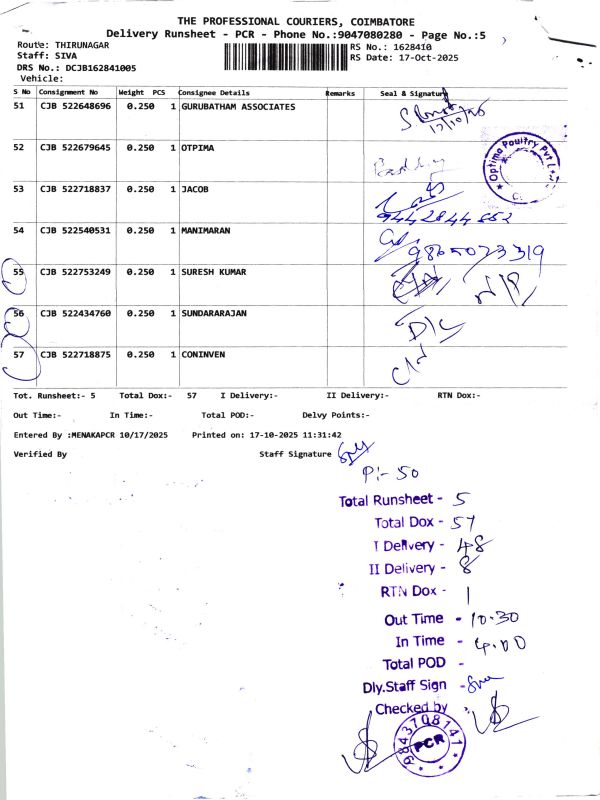 THE PROFESSIONAL COURIERS, COIMBATORE
Delivery Runsheet - PCR - Phone No.:9047080280 - Page No.:5
Route: THIRUNAGAR
Staff: SIVA
DRS No.: DCJB162841005
Vehicle:
RS No.: 1628410
RS Date: 17-Oct-2025
S No Consignment No Weight PCS Consignee Details Remarks Seal & Signature
51 CJB 522648696 0.250 1 GURUBATHAM ASSOCIATES
52 CJB 522679645 0.250 1 OTPIMA
Optima Poultry Pvt L
53 CJB 522718837 0.250 1 JACOB
9442844552
54 CJB 522540531 0.250 1 MANIMARAN
9865073319
55 CJB 522753249 0.250 1 SURESH KUMAR N/P
56 CJB 522434760 0.250 1 SUNDARARAJAN D/L
57 CJB 522718875 0.250 1 CONINVEN
Tot. Runsheet:- 5 Total Dox:- 57 I Delivery:- II Delivery:- RTN Dox:-
Out Time:- In Time:- Total POD:- Delvy Points:-
Entered By :MENAKAPCR 10/17/2025 Printed on: 17-10-2025 11:31:42
Verified By Staff Signature
P:- 50
Total Runsheet - 5
Total Dox - 57
I Delivery - 48
II Delivery - 8
RTN Dox - 1
Out Time - 10.30
In Time - 4.00
Total POD -
Dly.Staff Sign -
Checked by
9843708141
PCR